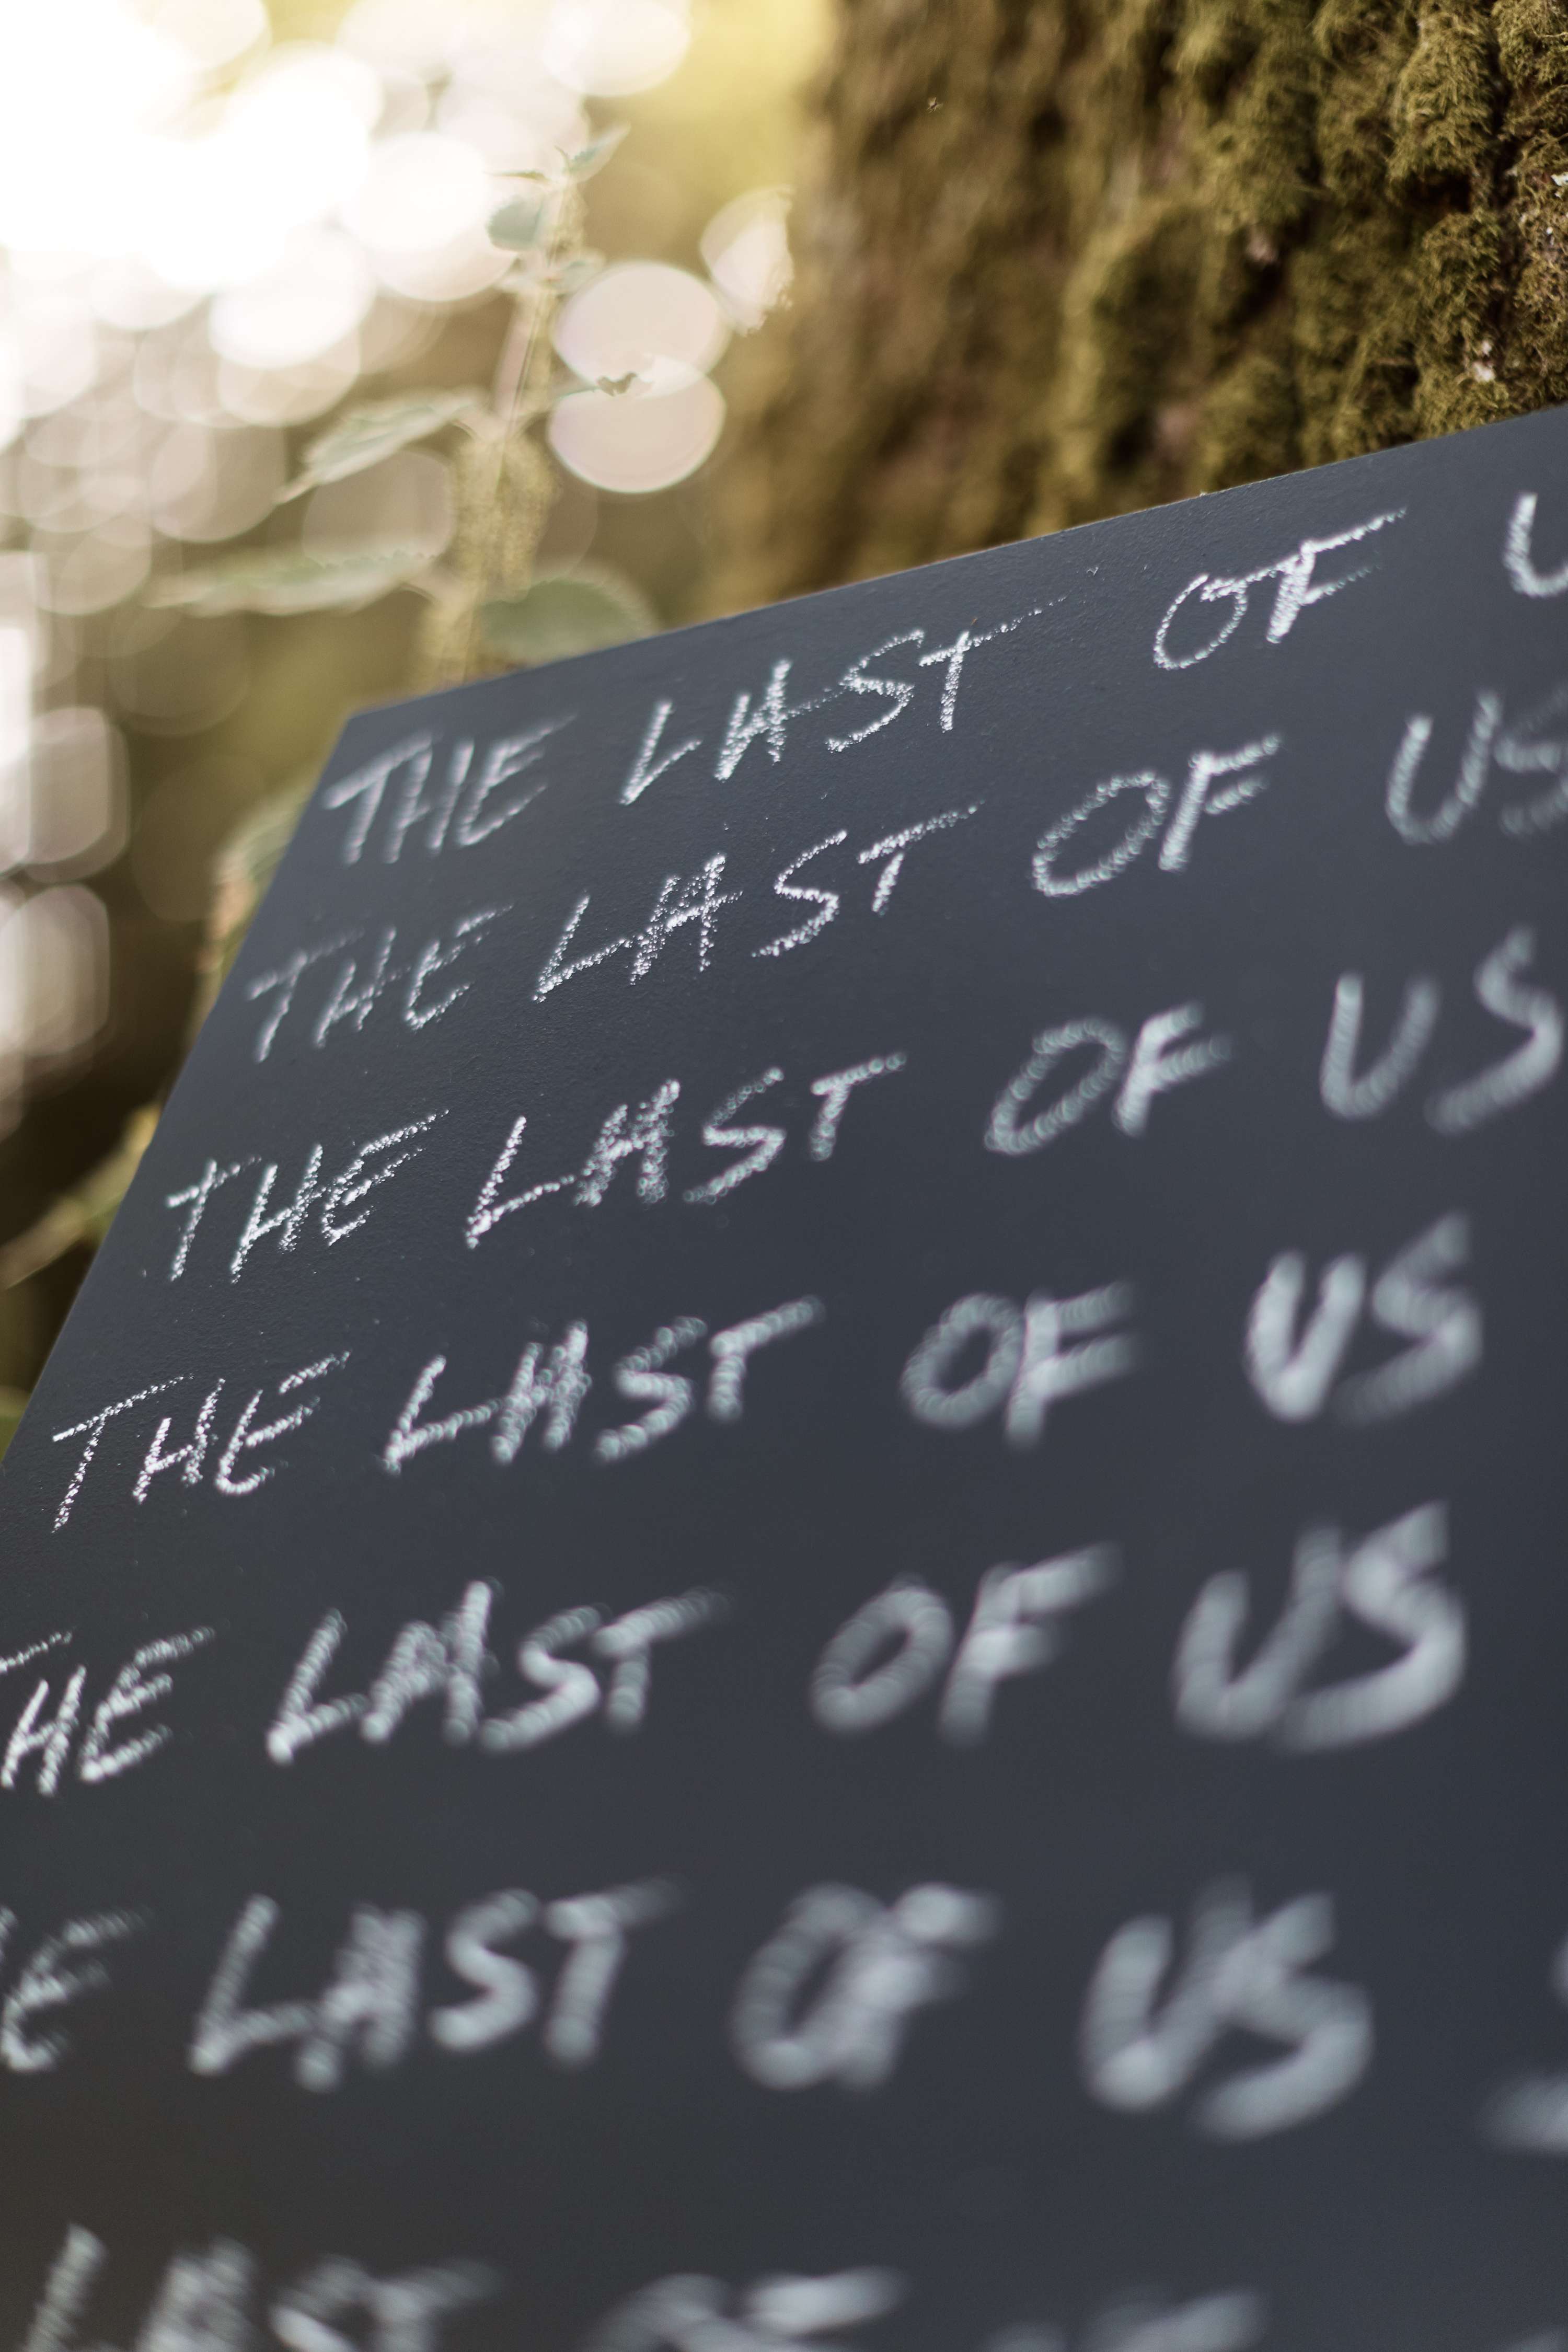 THE LAST OF U
THE LAST OF US
THE LAST OF US
THE LAST OF US
THE LAST OF US
HE LAST OF US
LAST OF